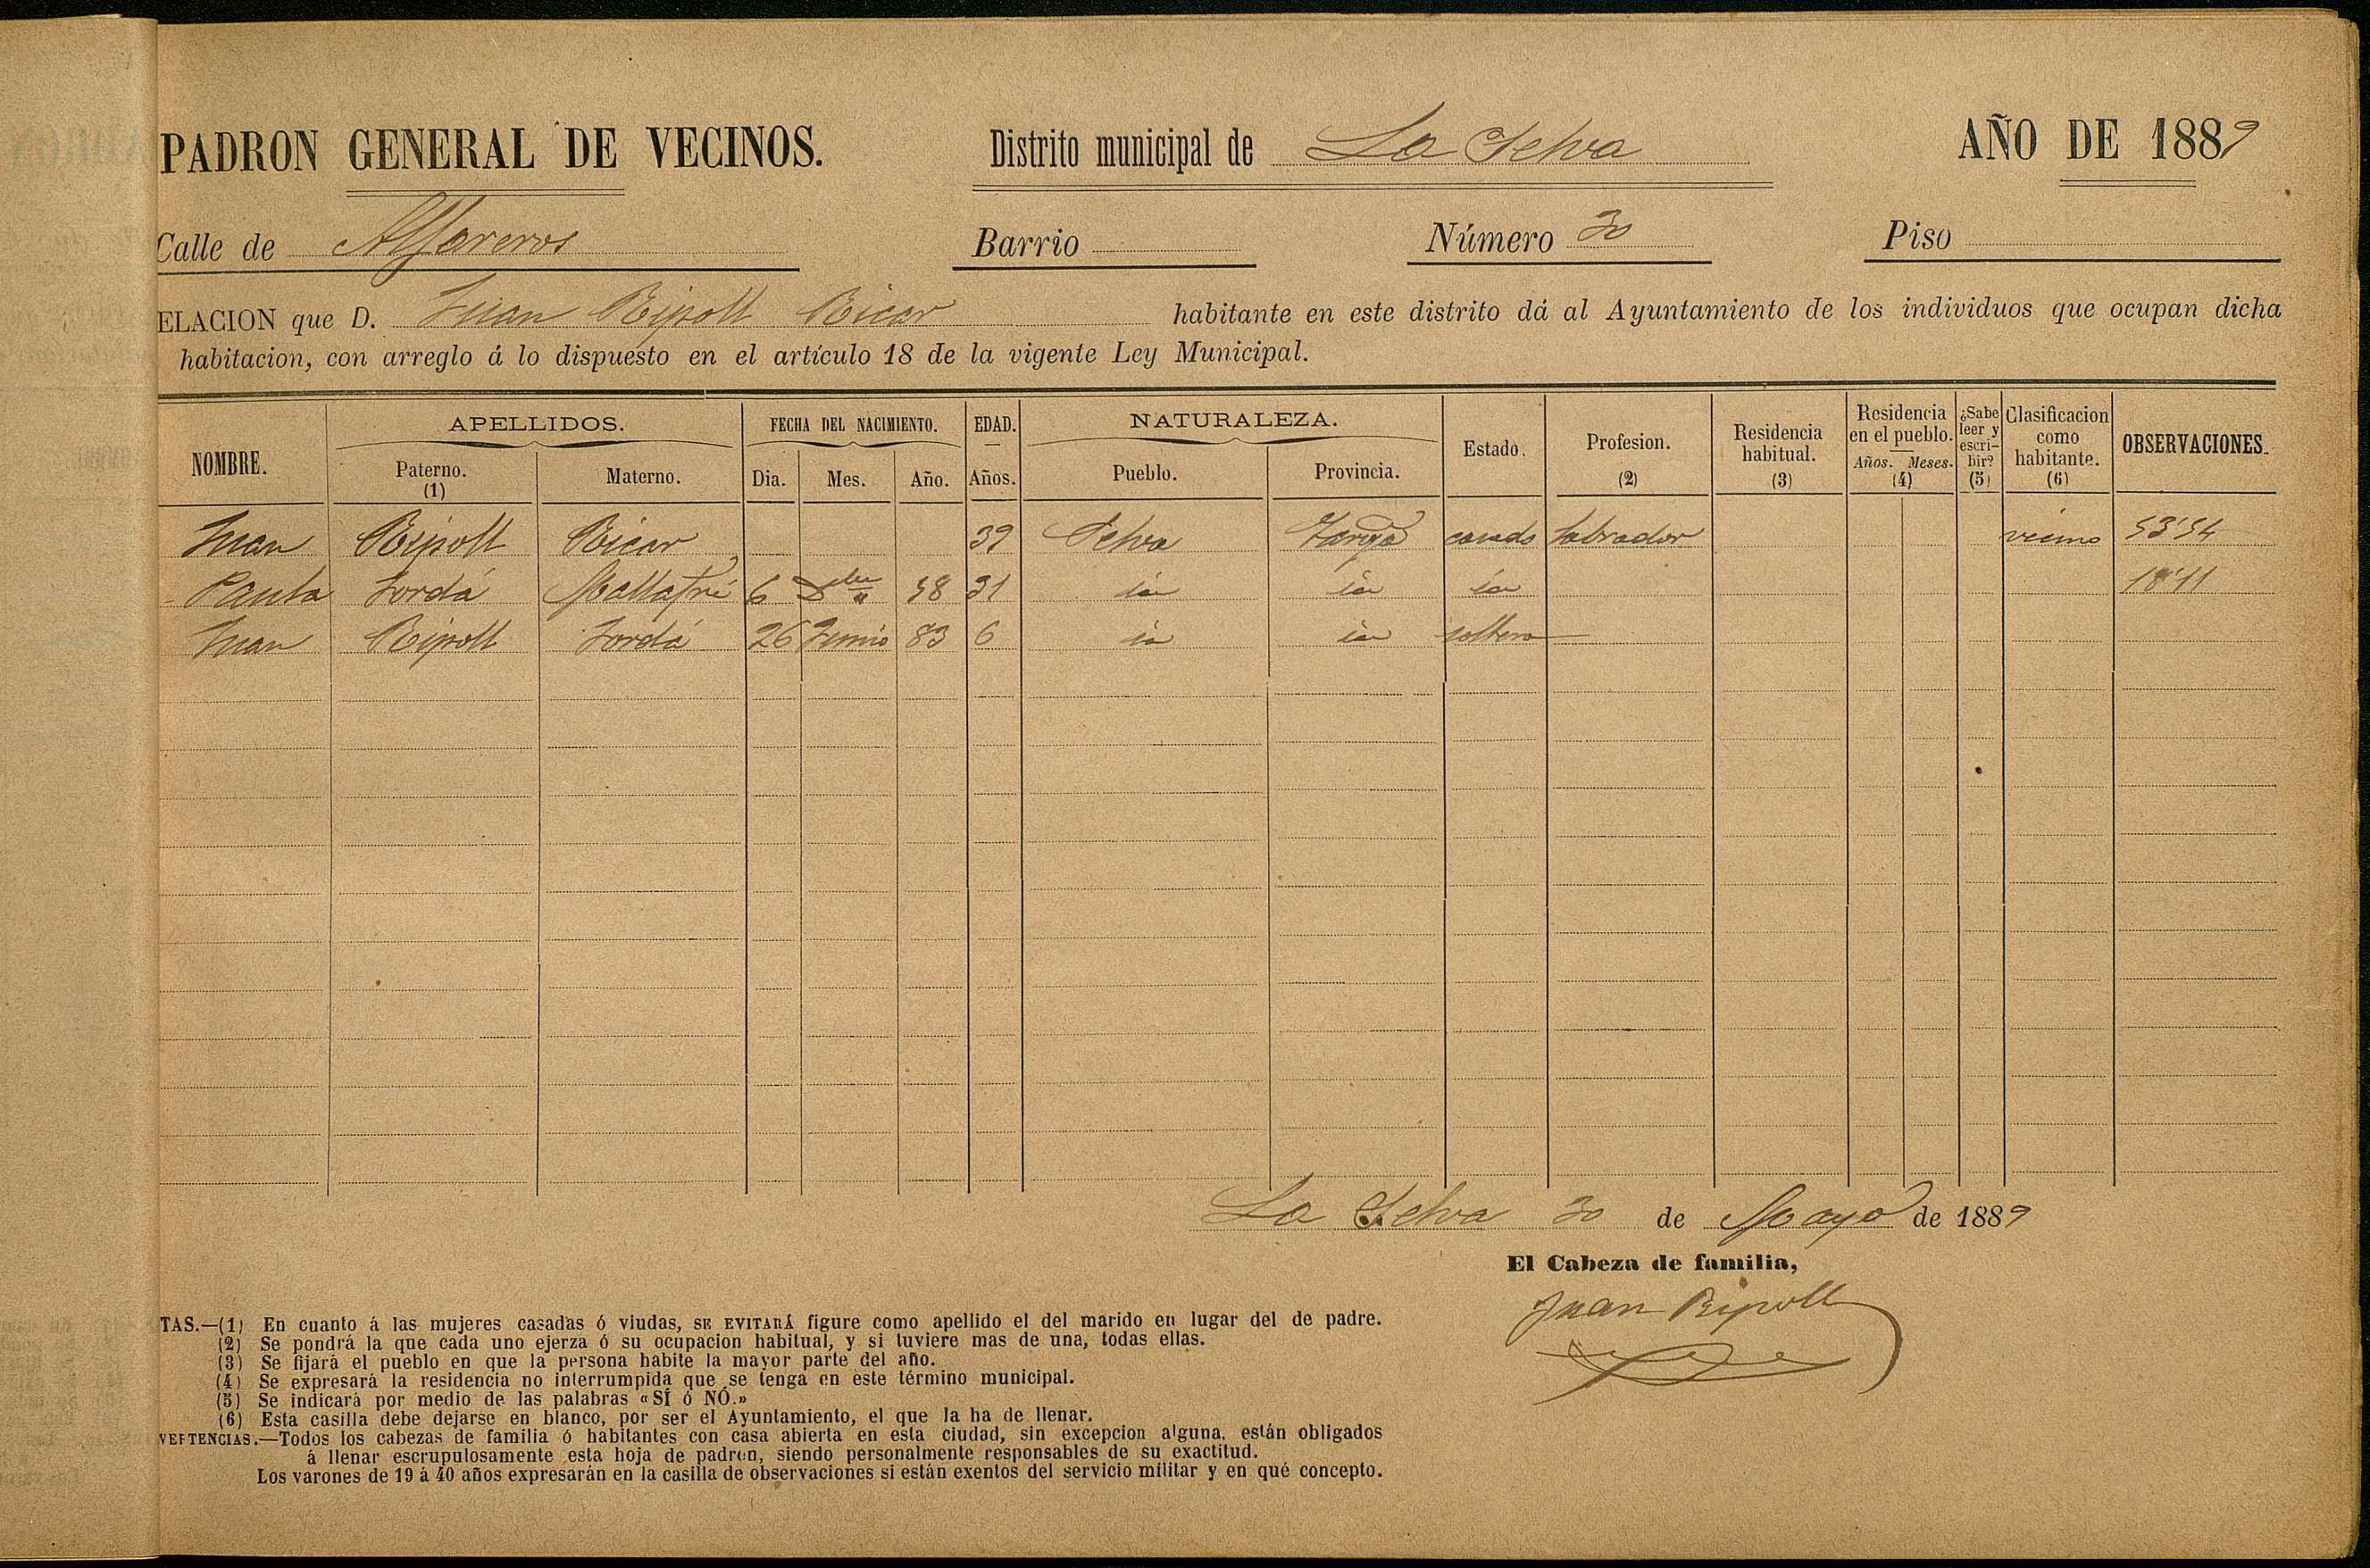 PADRON GENERAL DE VECINOS. Distrito municipal de La Selva AÑO DE 1889
Calle de Alfareros Barrio Número 30 Piso
ELACION que D. Juan Ripoll Bicar habitante en este distrito dá al Ayuntamiento de los individuos que ocupan dicha
habitacion, con arreglo á lo dispuesto en el artículo 18 de la vigente Ley Municipal.
NOMBRE. APELLIDOS. Paterno. (1) Materno. FECHA DEL NACIMIENTO. Dia. Mes. Año. EDAD. Años. NATURALEZA. Pueblo. Provincia. Estado. Profesion. (2) Residencia habitual. (3) Residencia en el pueblo. Años. Meses. (4) ¿Sabe leer y escribir? (5) Clasificacion como habitante. (6) OBSERVACIONES.
Juan Ripoll Bicar 39 Selva casado labrador vecino 53'54
Paula Jordá 6 58 31 id id id 18'11
Juan Ripoll Jordá 26 Junio 83 6 id id soltero
La Selva 30 de Mayo de 1889
El Cabeza de familia,
Juan Ripoll
TAS.—(1) En cuanto á las mujeres casadas ó viudas, SE EVITARÁ figure como apellido el del marido en lugar del de padre.
(2) Se pondrá la que cada uno ejerza ó su ocupacion habitual, y si tuviere mas de una, todas ellas.
(3) Se fijará el pueblo en que la persona habite la mayor parte del año.
(4) Se expresará la residencia no interrumpida que se tenga en este término municipal.
(5) Se indicará por medio de las palabras «SÍ ó NÓ.»
(6) Esta casilla debe dejarse en blanco, por ser el Ayuntamiento, el que la ha de llenar.
VERTENCIAS.—Todos los cabezas de familia ó habitantes con casa abierta en esta ciudad, sin excepcion alguna, están obligados
á llenar escrupulosamente esta hoja de padron, siendo personalmente responsables de su exactitud.
Los varones de 19 á 40 años expresarán en la casilla de observaciones si están exentos del servicio militar y en qué concepto.